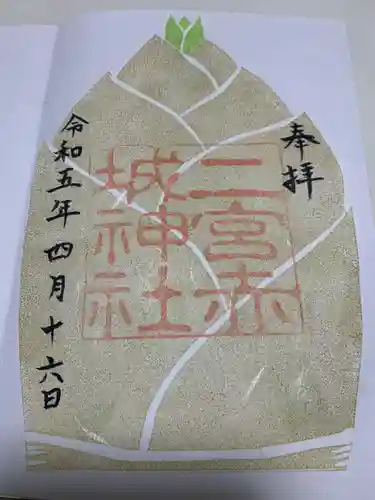 奉拝
二宮赤
城神社
令和五年四月十六日